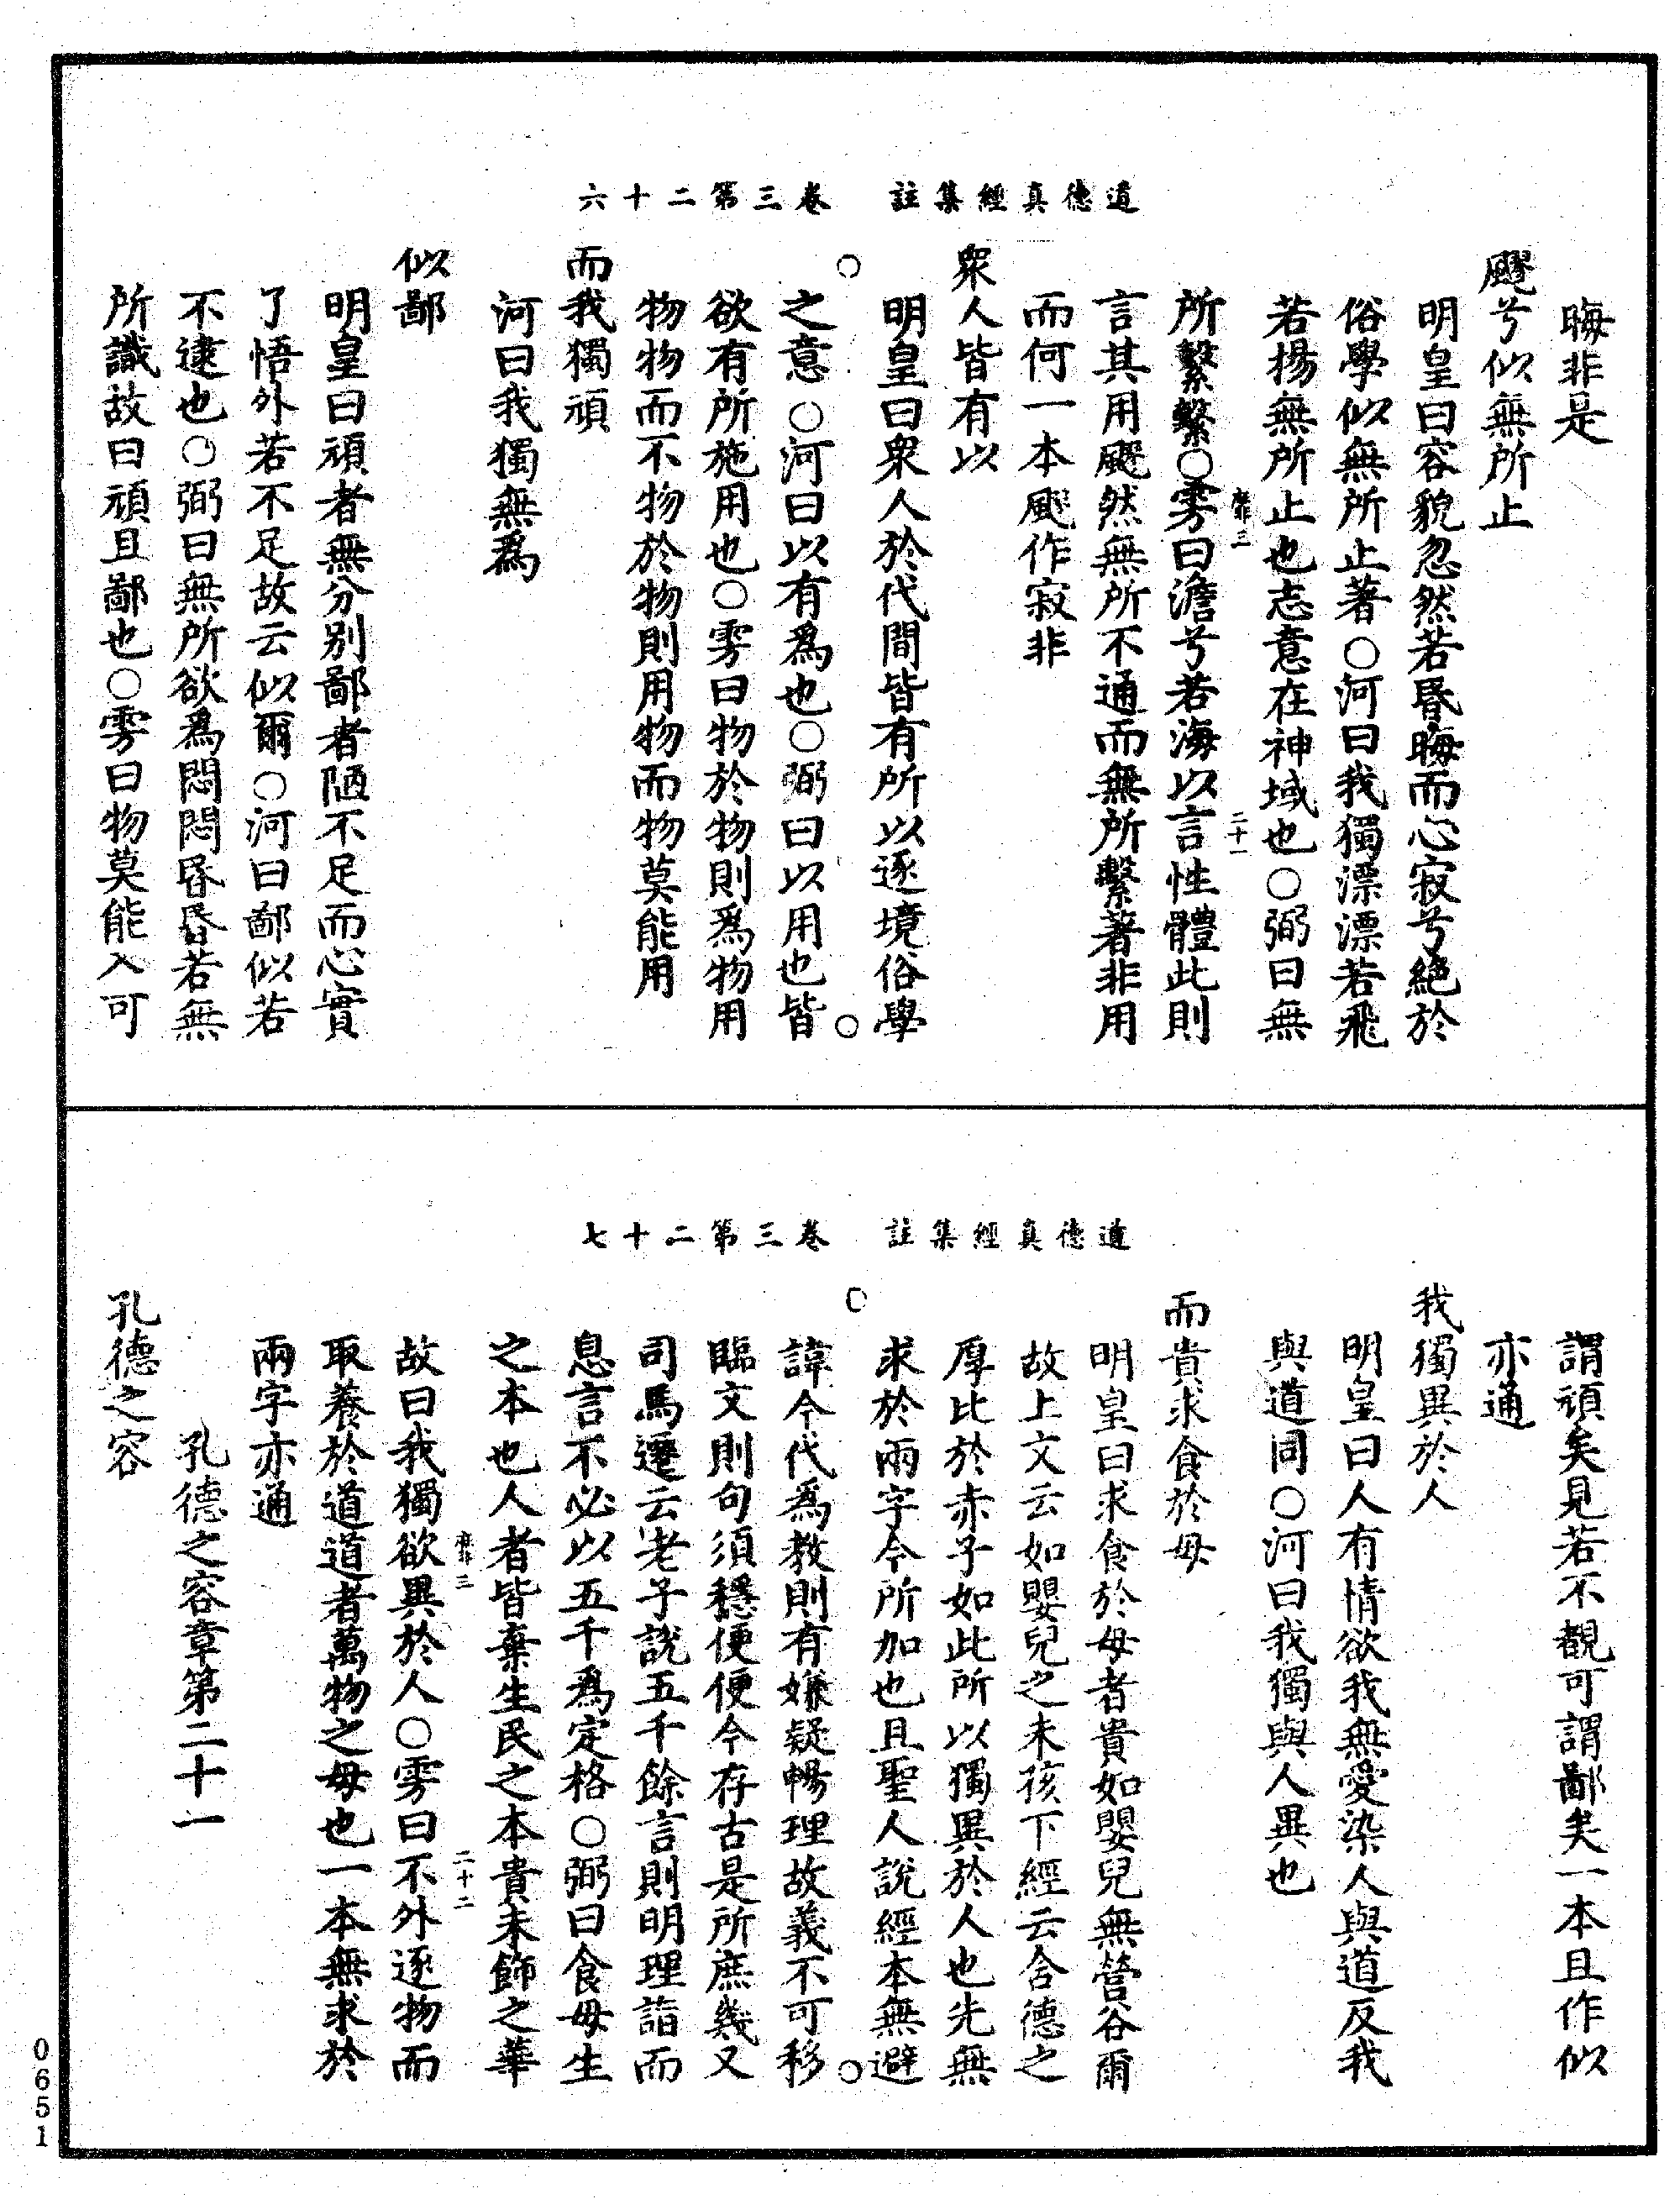 道德真經集註　卷三第二十六
晦非是
飂兮似無所止
明皇曰容貌忽然若昬晦而心寂兮絕於
俗學似無所止著○河曰我獨漂漂若飛
若揚無所止也志意在神域也○弼曰無
靡三　二十一
所繫縶○雱曰澹兮若海以言性體此則
言其用飂然無所不通而無所繫著非用
而何一本飂作寂非
衆人皆有以
明皇曰衆人於代間皆有所以逐境俗學
之意○河曰以有爲也○弼曰以用也皆
欲有所施用也○雱曰物於物則爲物用
物物而不物於物則用物而物莫能用
而我獨頑
河曰我獨無爲
似鄙
明皇曰頑者無分别鄙者陋不足而心實
了悟外若不足故云似爾○河曰鄙似若
不逮也○弼曰無所欲爲悶悶昏昏若無
所識故曰頑且鄙也○雱曰物莫能入可
道德真經集註　卷三第二十七
謂頑矣見若不覩可謂鄙矣一本且作似
亦通
我獨異於人
明皇曰人有情欲我無愛染人與道反我
與道同○河曰我獨與人異也
而貴求食於母
明皇曰求食於母者貴如嬰兒無營谷爾
故上文云如嬰兒之未孩下經云含德之
厚比於赤子如此所以獨異於人也先無
求於兩字今所加也且聖人說經本無避
諱今代爲教則有嫌疑暢理故義不可移
臨文則句須穩便便今存古是所庶幾又
司馬遷云老子說五千餘言則明理詣而
息言不必以五千爲定格○弼曰食母生
之本也人者皆棄生民之本貴末飾之華
靡三　二十二
故曰我獨欲異於人○雱曰不外逐物而
取養於道道者萬物之母也一本無求於
兩字亦通
孔德之容章第二十一
孔德之容
0651